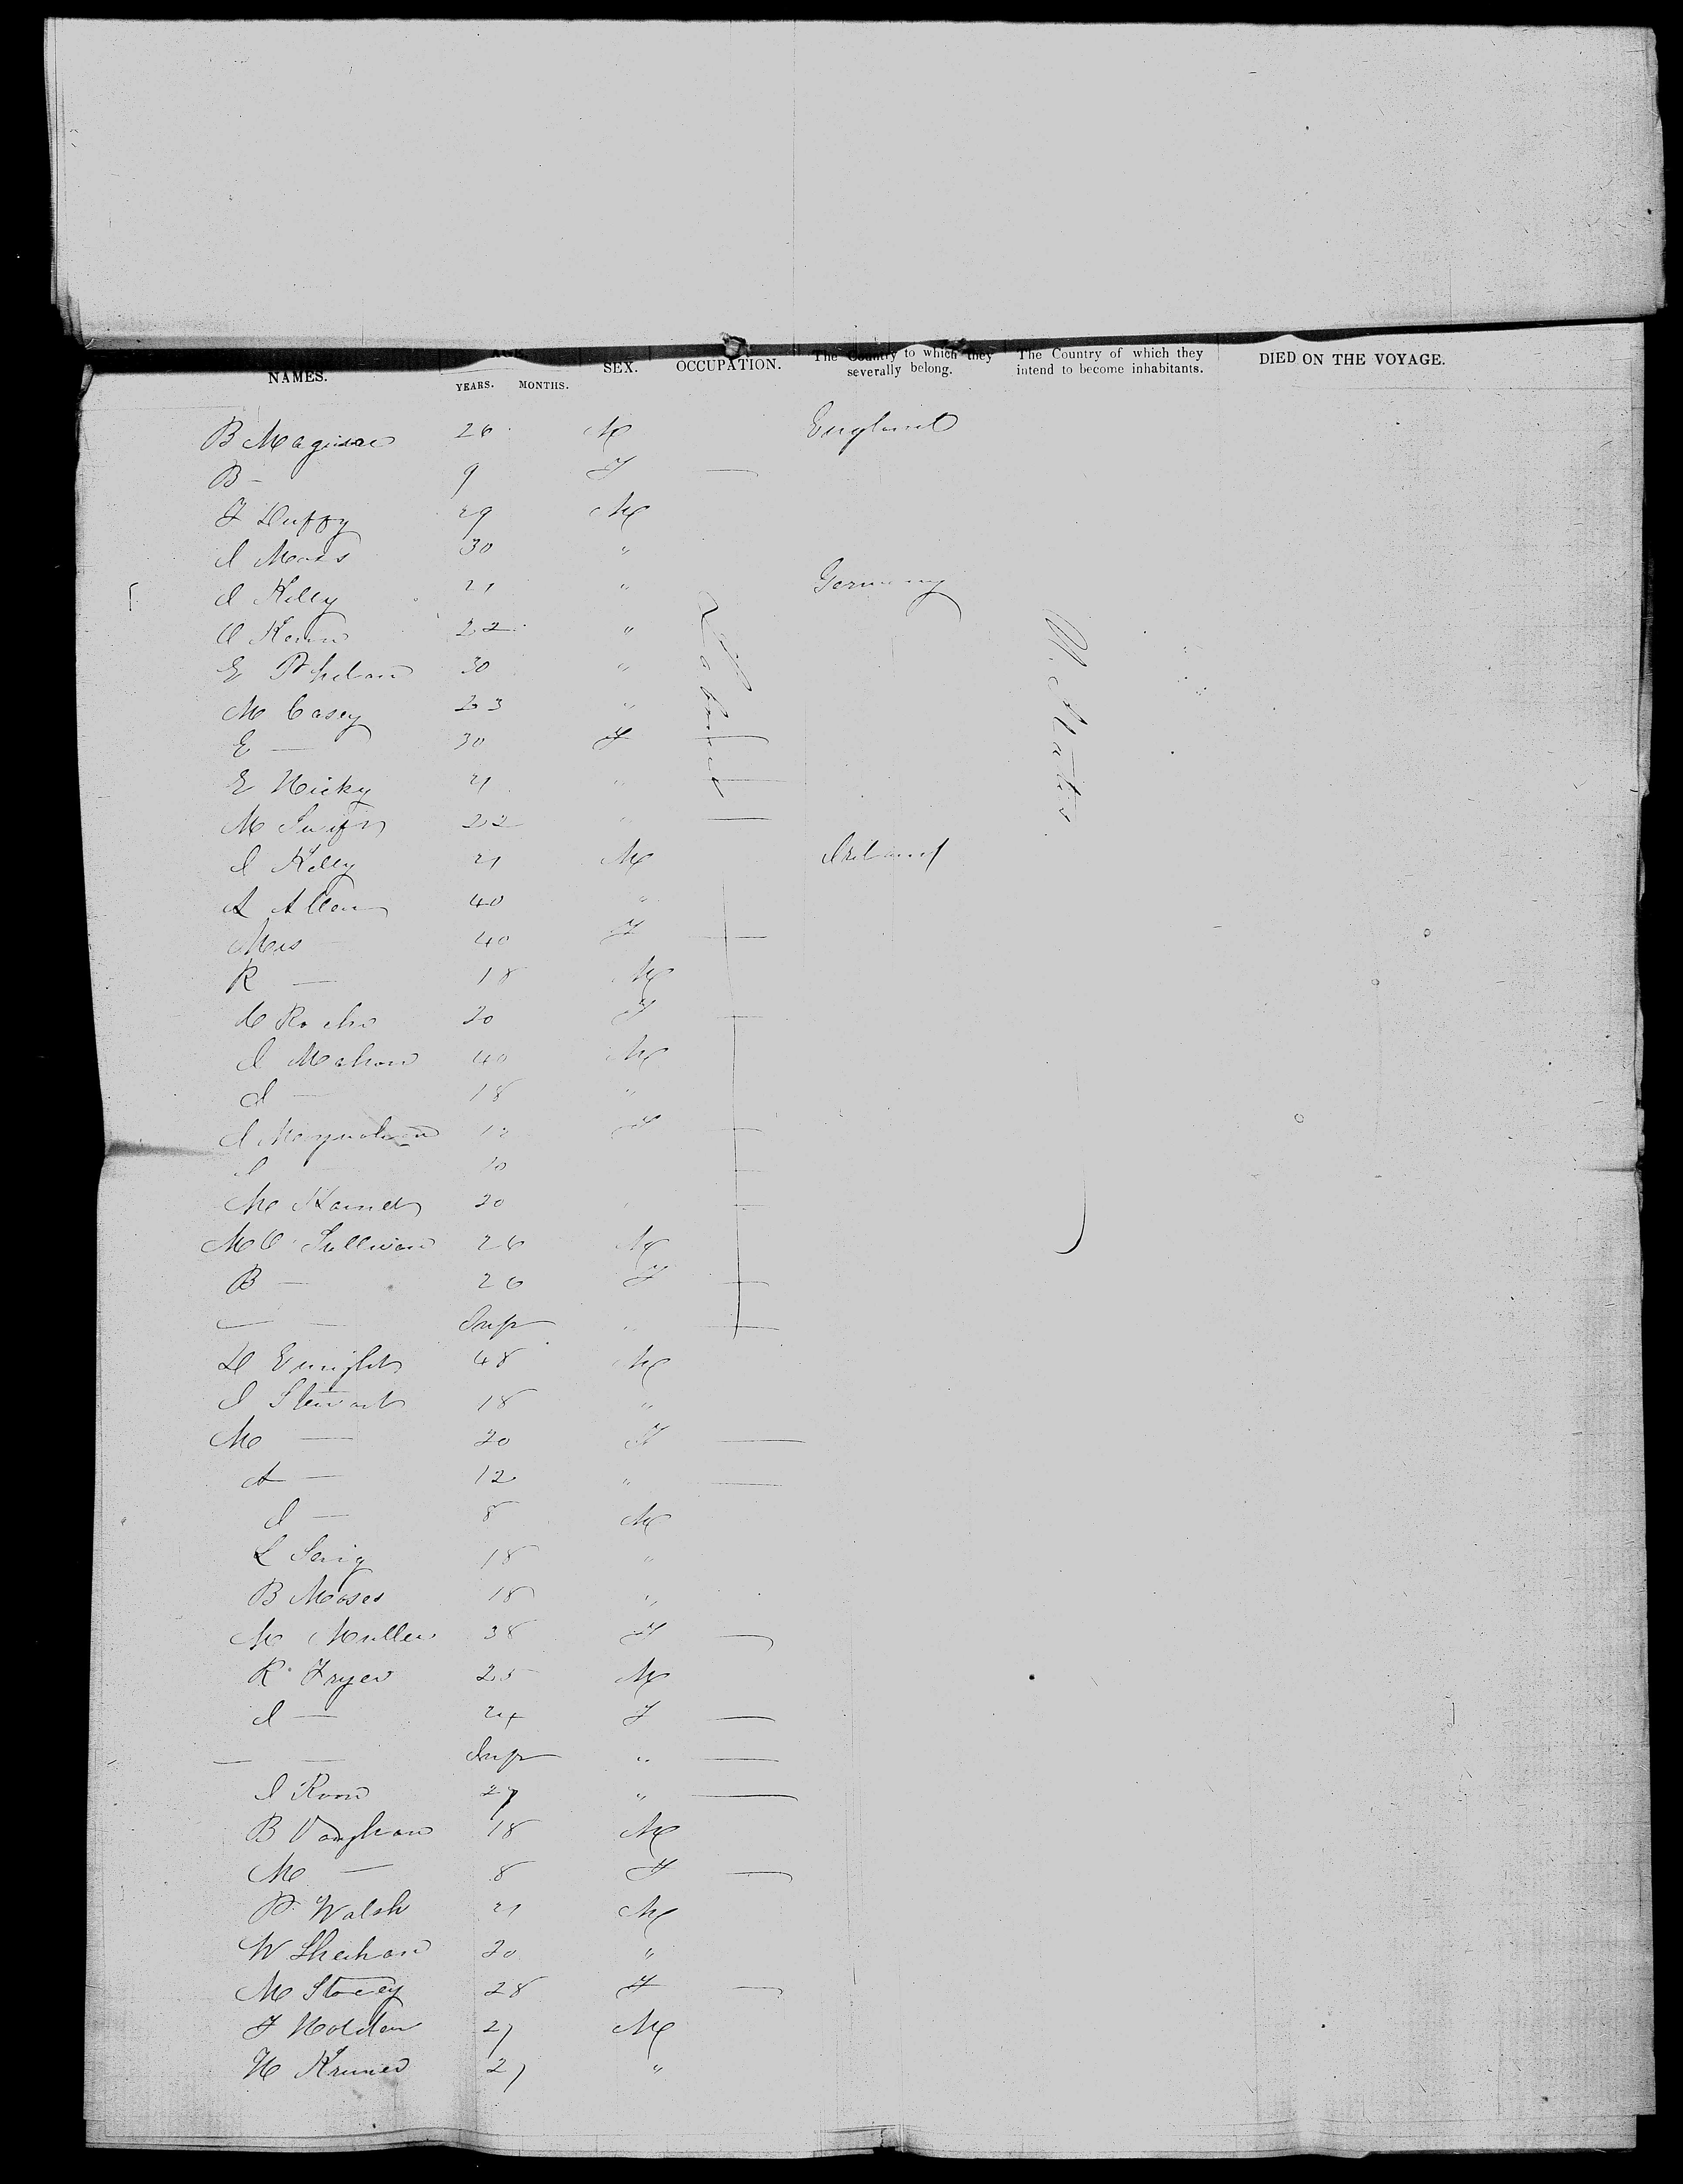 NAMES. AGE SEX. OCCUPATION. The Country to which they severally belong. The Country of which they intend to become inhabitants. DIED ON THE VOYAGE.
YEARS. MONTHS.
B Maguire 26 M England
B — 9 F —
F Duffy 29 M
30 "
J Kelly 21 " Germany
22 "
E Phelan 30 "
M Casey 23 "
E — 30 F —
E Hicky 21 " —
M Swift 22 " —
J Kelly 21 M Ireland
A Allen 40 "
Mrs — 40 F —
R — 18 M
Roche 20 F —
J Mahon 40 M
J — 18 "
J 12 F —
10 —
M 20 —
M O Sullivan 26 M
B — 26 F —
— — Inft " —
D Enright 48 M
J Stewart 18 "
M — 20 F —
A — 12 " —
J — 8 M
L 18 "
B Moses 18 "
M Mullen 38 F —
R Fryer 25 M
J — 24 F —
— — Inft " —
J 27 " —
B Vaughan 18 M
M — 8 F —
P Walsh 21 M
W Sheehan 20 "
M Stacey 28 F —
F Holden 27 M
H 27 "
Laborer
U. States